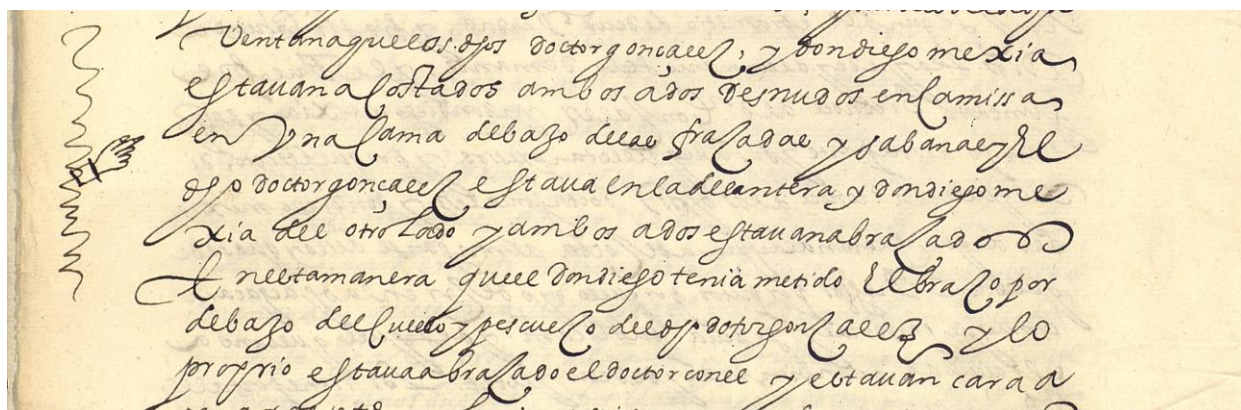 Ventana que los dhos doctor gonçalez, y don diego mexia
estavan acostados ambos a dos desnudos en camissa
en Vna cama debaxo de las fraçadas y sabanas y El
dho doctor gonçalez estaua en la delantera y don diego me
xia del otro lado y ambos a dos estauan abraçados
En esta manera que el don diego tenia metido El braço por
debaxo del cuello y pescueço del dho dotor gonçalez y lo
proprio estaua abraçado el doctor con el y estauan cara a